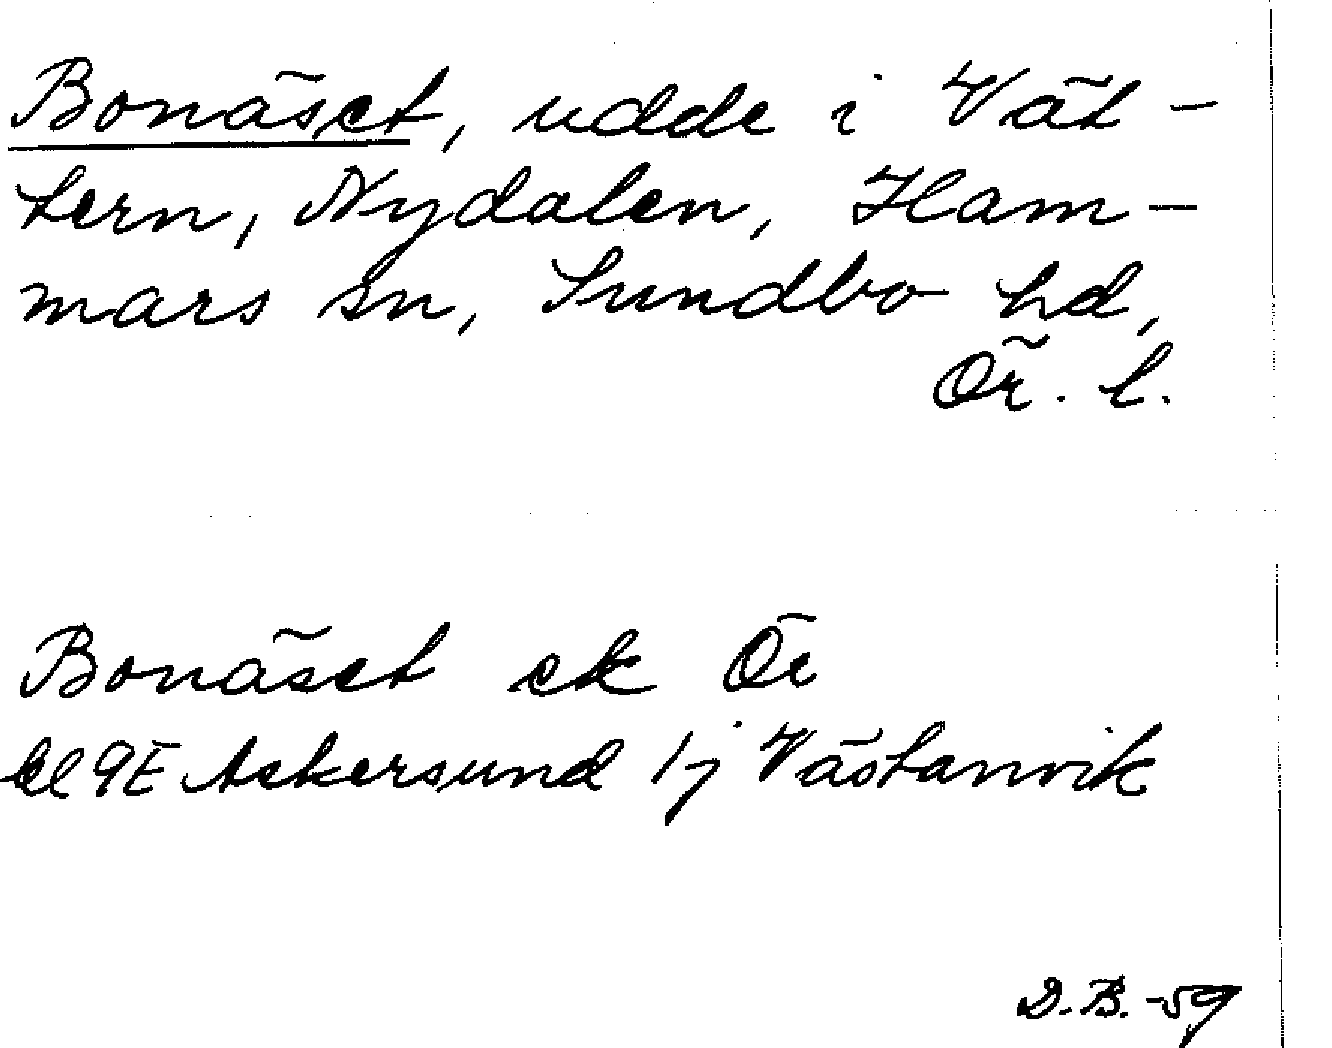 Bonäset, udde i Vät-
tern, Nydalen, Ham-
mars sn, Sundbo hd,
Ör. l.
Bonäset ek Ör
bl 9E Askersund 1j Västanvik
D.B.-59